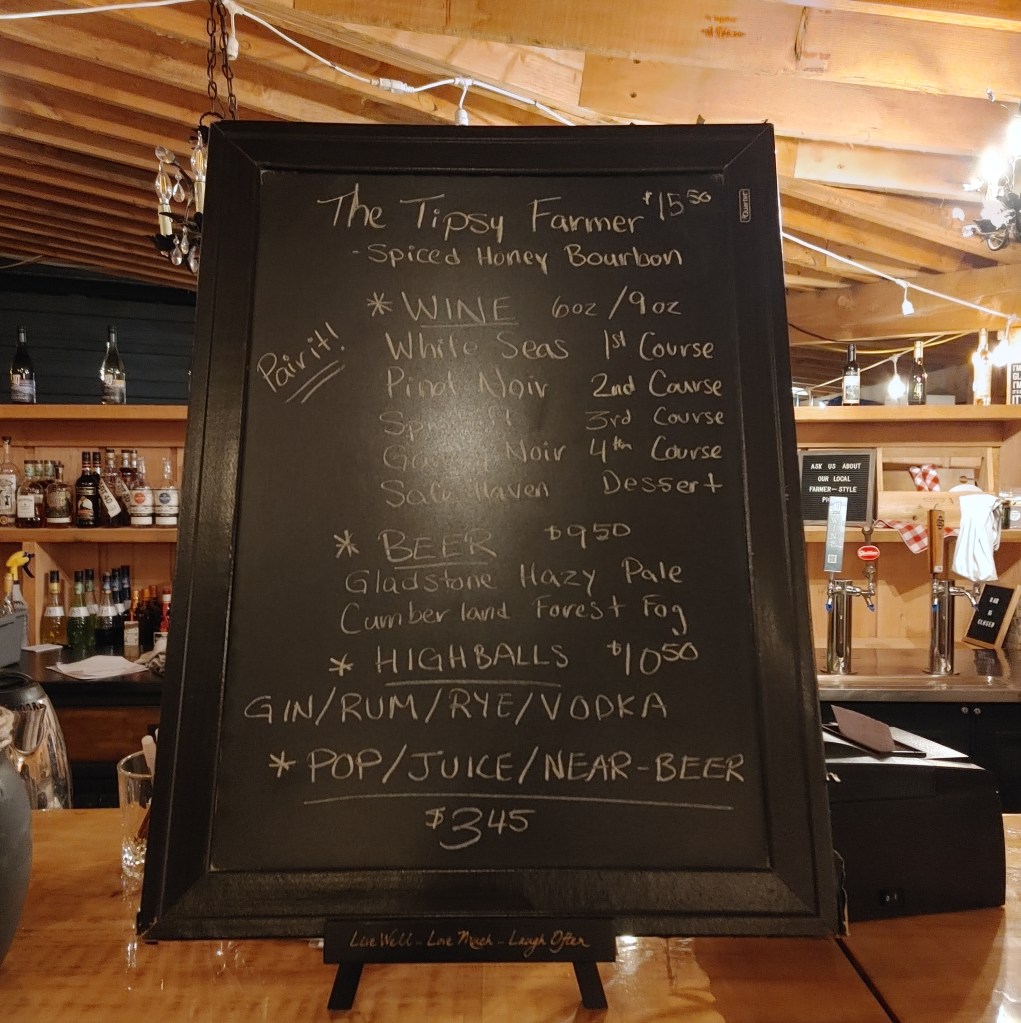 The Tipsy Farmer $15 50
- Spiced Honey Bourbon
* WINE 6oz / 9oz
Pair it!
White Seas 1st Course
Pinot Noir 2nd Course
3rd Course
Noir 4th Course
Haven Dessert
* BEER $9 50
Gladstone Hazy Pale
Cumberland Forest Fog
* HIGHBALLS $10 50
GIN/RUM/RYE/VODKA
* POP/JUICE/NEAR-BEER
$3 45
Live Well - Love Much - Laugh Often
Quartet
ASK US ABOUT
OUR LOCAL
FARMER-STYLE
BAR
IS
CLOSED